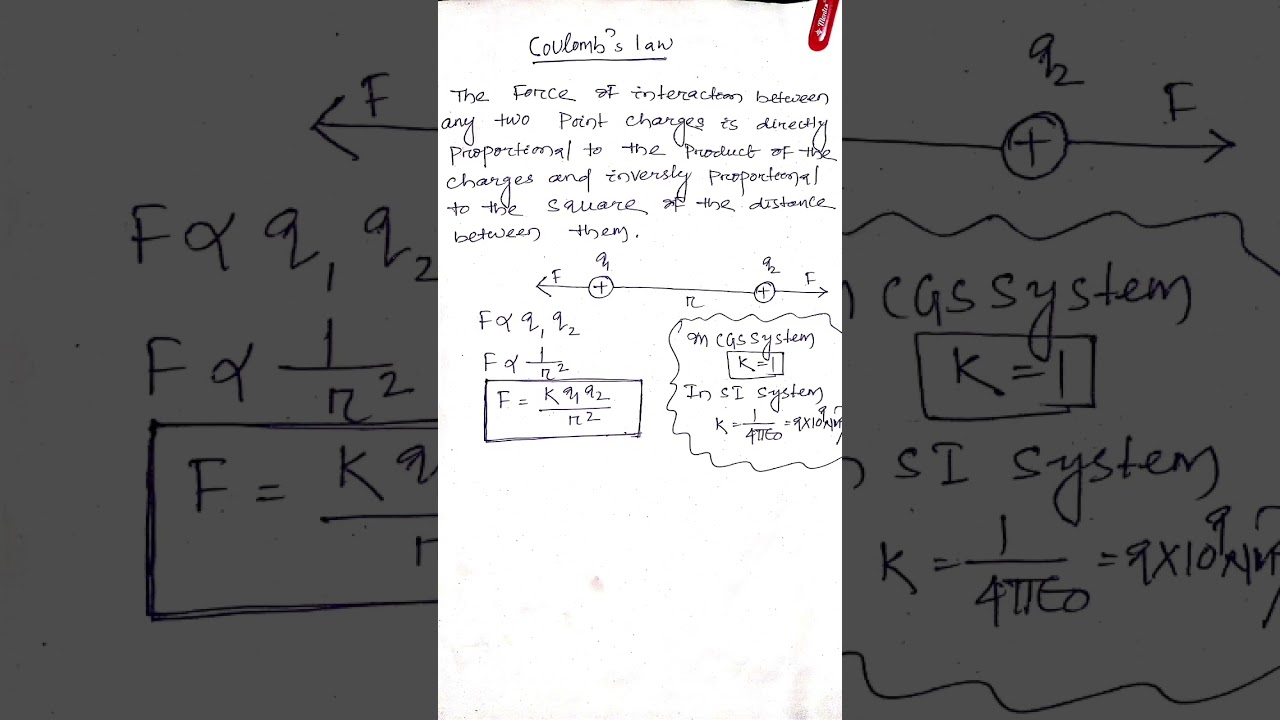 Coulomb's law
The Force of interaction between
any two Point charges is directly
Proportional to the Product of the
charges and inversly Proportional
to the square of the distance
between them.
F q1 q2 F
r
F ∝ q1 q2
F ∝ 1/r²
F = K q1 q2 / r²
In CGS System
K = 1
In SI System
K = 1/4πε0 = 9×10⁹